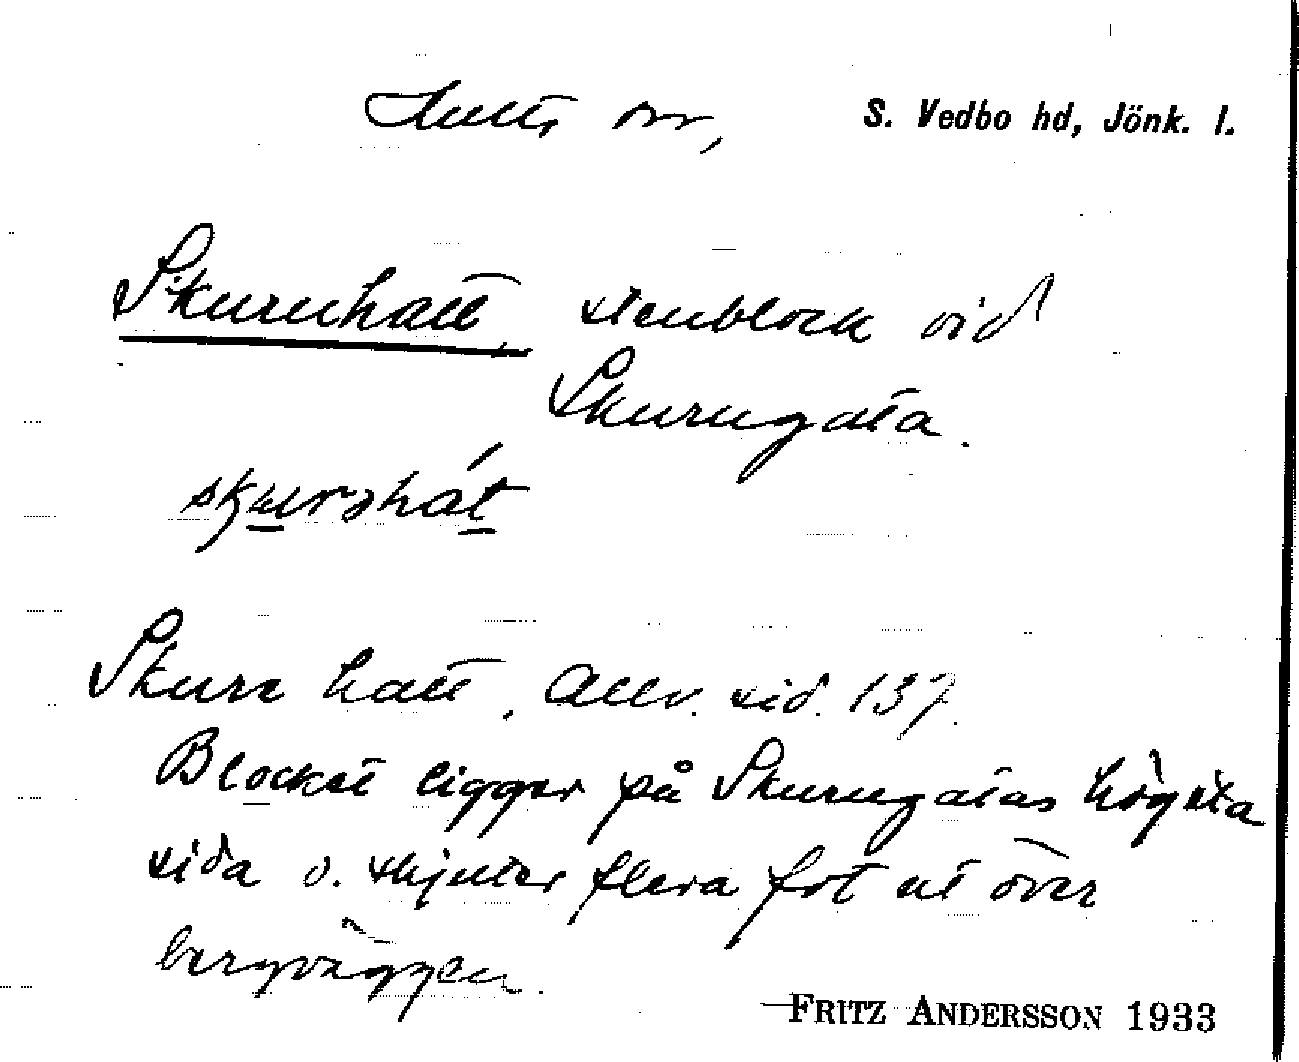 Hults sn, S. Vedbo hd, Jönk. l.
Skuruhatt, stenblock vid
Skurugata.
skurəhát
Skure hatt, Allv. sid. 137.
Blocket ligger på Skurugatas högsta
sida o. skjuter flera fot ut över
bergväggen.
FRITZ ANDERSSON 1933